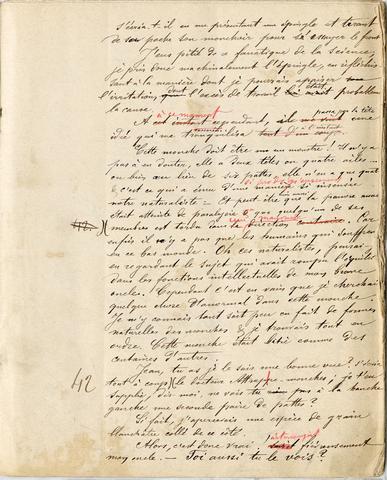 s'écria-t-il en me présentant une épingle et tirant
de sa poche son mouchoir pour s'essuyer le front
J'eus pitié de ce fanatique de la science,
je pris donc machinalement l'épingle, en réfléchis-
sant à la manière dont je pourrais apaiser
l'irritation, dont l'excès de travail était probablem
la cause.
A ce moment cependant, il me passa par la tête une
idée qui me tranquillisa tout d'un coup.
Cette mouche doit être un monstre! Il n'y a
pas à en douter, elle a deux têtes ou quatre ailes...
ou bien au lieu de six pattes, elle n'en a que quatre
& c'est ce qui a ému d'une manière si insensée
notre naturaliste — Et peut être que la pauvre aussi
était atteinte de paralysie & que quelqu'un de ses
membres est tordu dans la direction contraire. Car
enfin il n'y a pas que les humains qui souffrent
en ce bas monde. Oh ces naturalistes, pensai-
en regardant le sujet qui avait rompu l'équilib
dans les fonctions intellectuelles de mon brave
oncle. Cependant c'est en vain que je cherchai
quelque chose d'anormal dans cette mouche.
Je m'y connais tant soit peu en fait de formes
naturelles des mouches & je trouvais tout en
ordre. Cette mouche était bâtie comme des
centaines d'autres.
Jean, tu as je le sais une bonne vue? s'écria
tout à coup le docteur Attrape-mouches, je t'en
supplie, dis-moi, ne vois tu pas à la hanche
gauche une seconde paire de pattes?
42
Si fait, j'apercevais une espèce de grain
blanchâtre collé de ce côté.
Alors, c'est donc vrai! fiévreusement
mon oncle. — Toi aussi tu le vois?